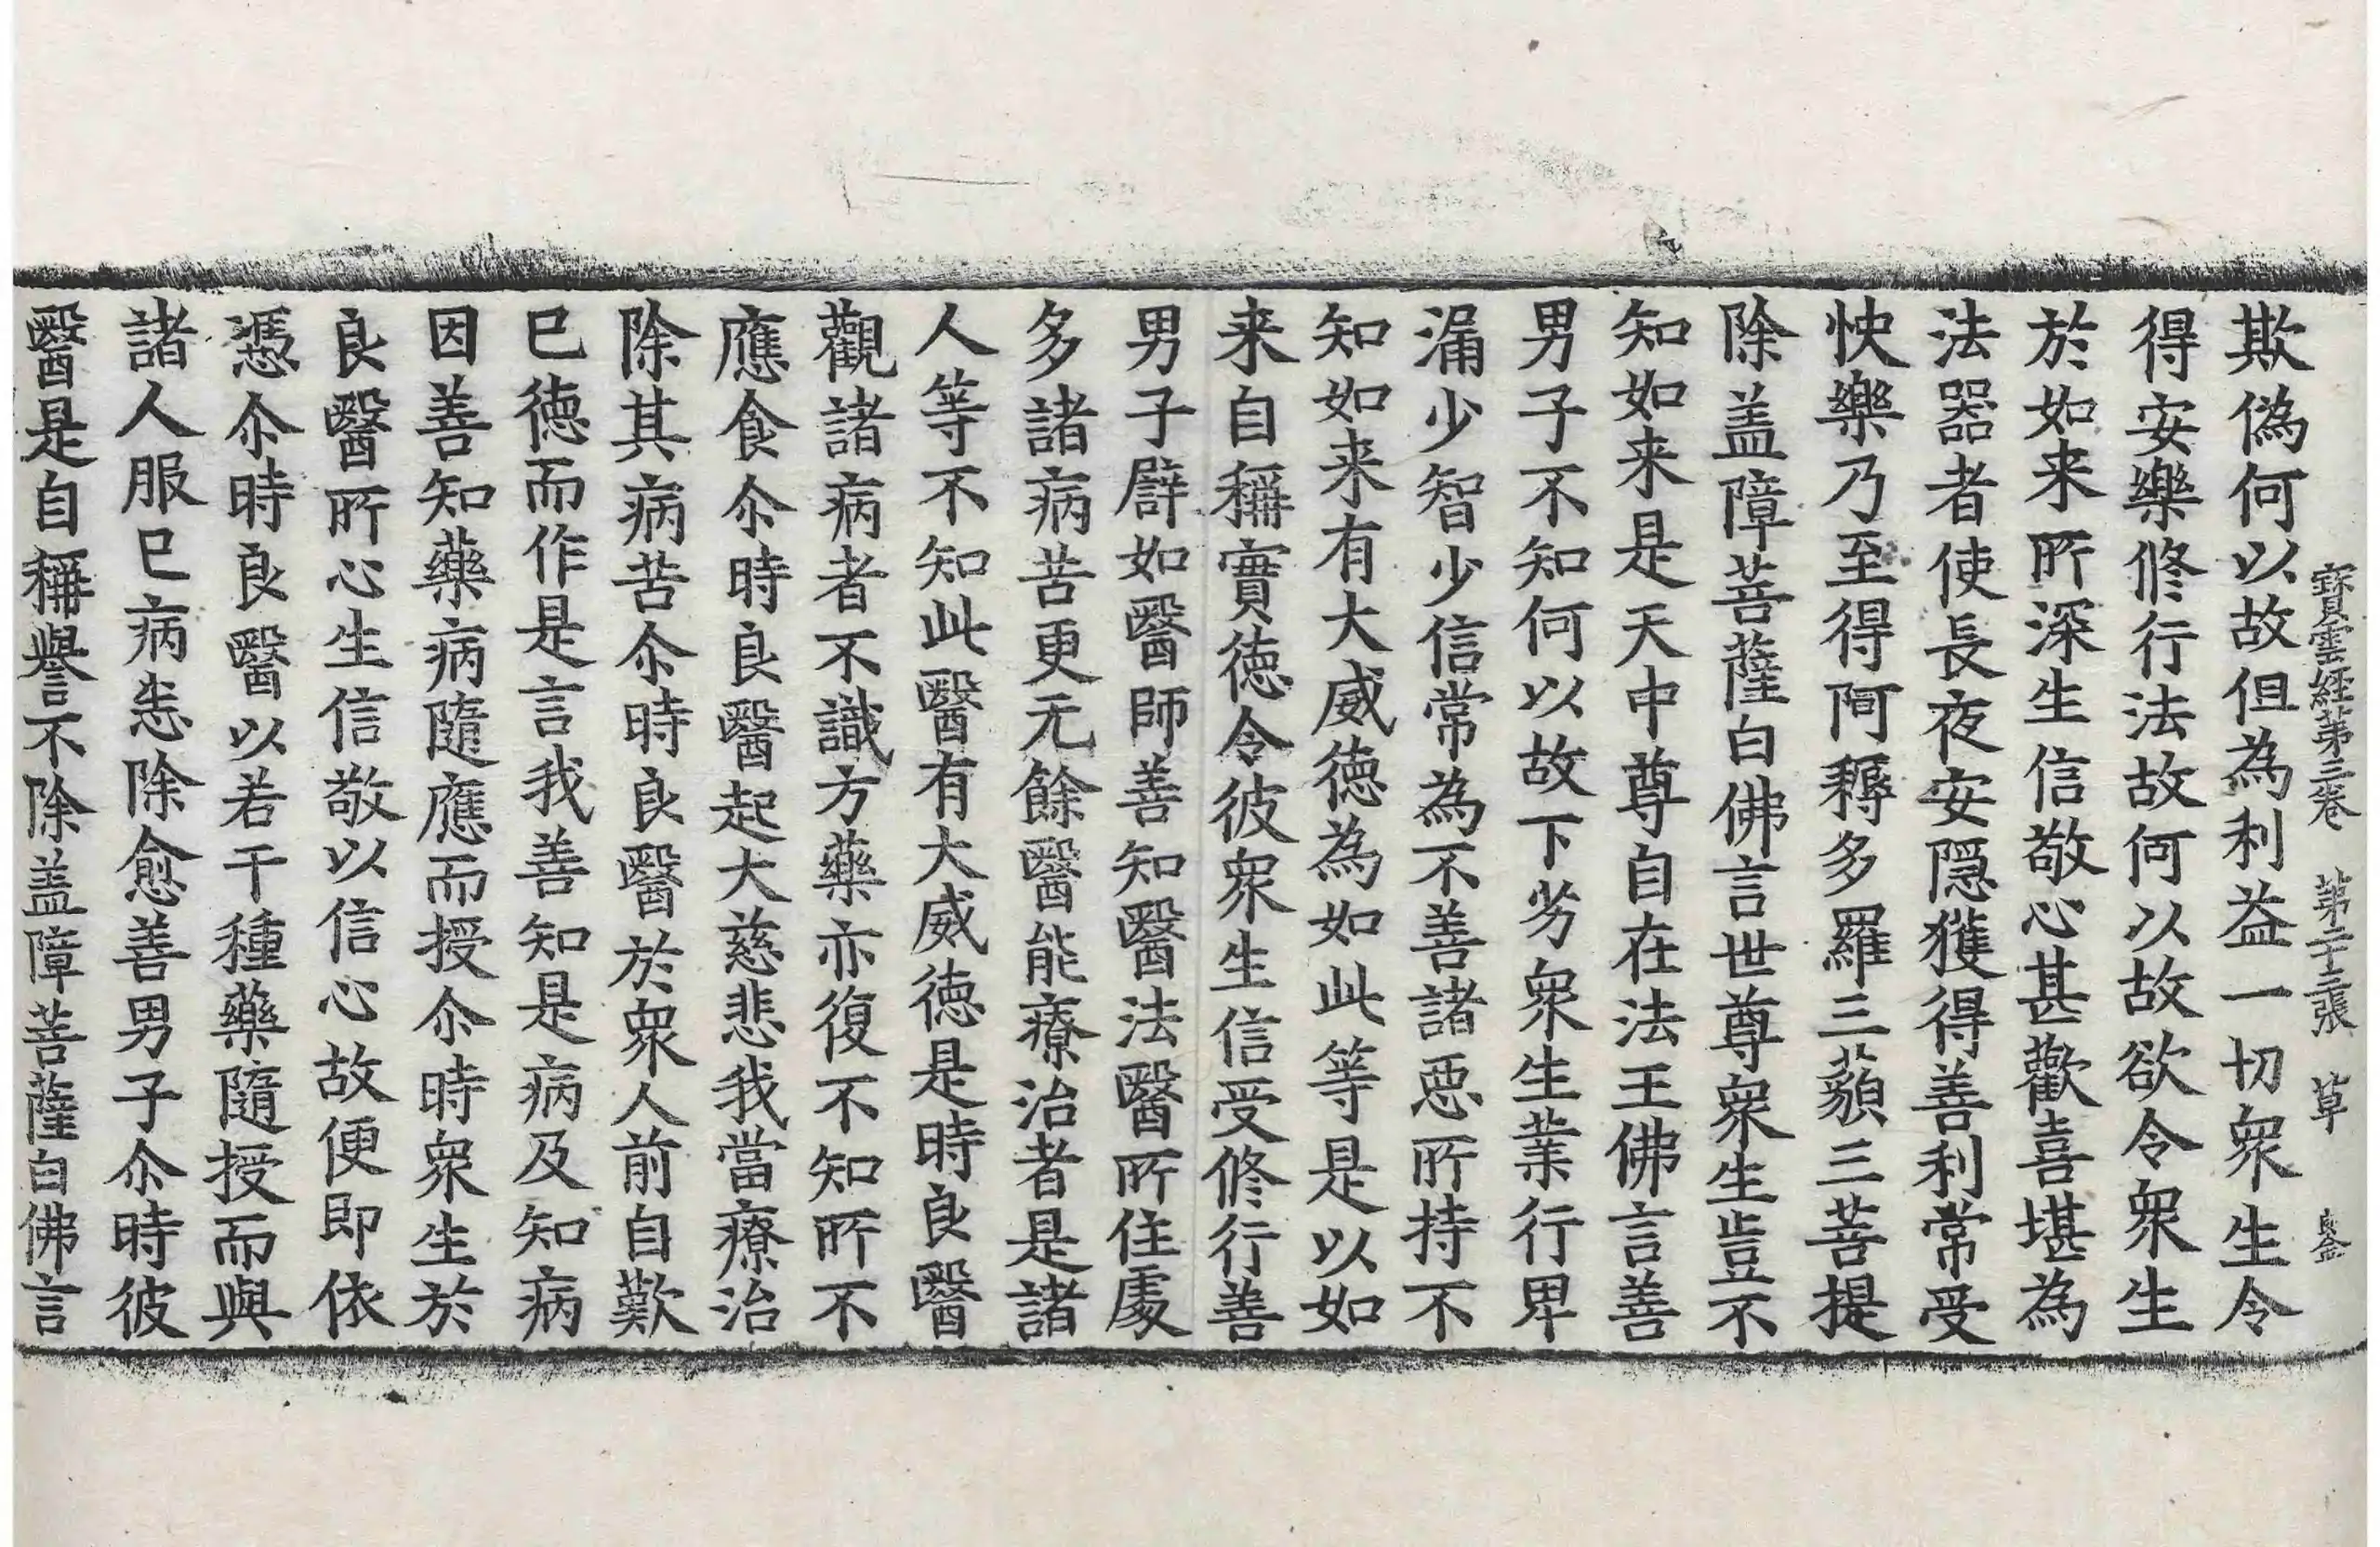 寶雲經第三卷　第二十三張　草
欺偽何以故但為利益一切衆生令
得安樂修行法故何以故欲令衆生
於如来所深生信敬心甚歡喜堪為
法器者使長夜安隠獲得善利常受
快樂乃至得阿耨多羅三藐三菩提
除盖障菩薩白佛言世尊衆生豈不
知如来是天中尊自在法王佛言善
男子不知何以故下劣衆生業行卑
漏少智少信常為不善諸惡所持不
知如来有大威德為如此等是以如
来自稱實德令彼衆生信受修行善
男子譬如醫師善知醫法醫所住處
多諸病苦更无餘醫能療治者是諸
人等不知此醫有大威德是時良醫
觀諸病者不識方藥亦復不知所不
應食尒時良醫起大慈悲我當療治
除其病苦尒時良醫於衆人前自歎
已德而作是言我善知是病及知病
因善知藥病隨應而授尒時衆生於
良醫所心生信敬以信心故便即依
憑尒時良醫以若干種藥隨授而與
諸人服已病恙除愈善男子尒時彼
醫是自稱譽不除盖障菩薩白佛言